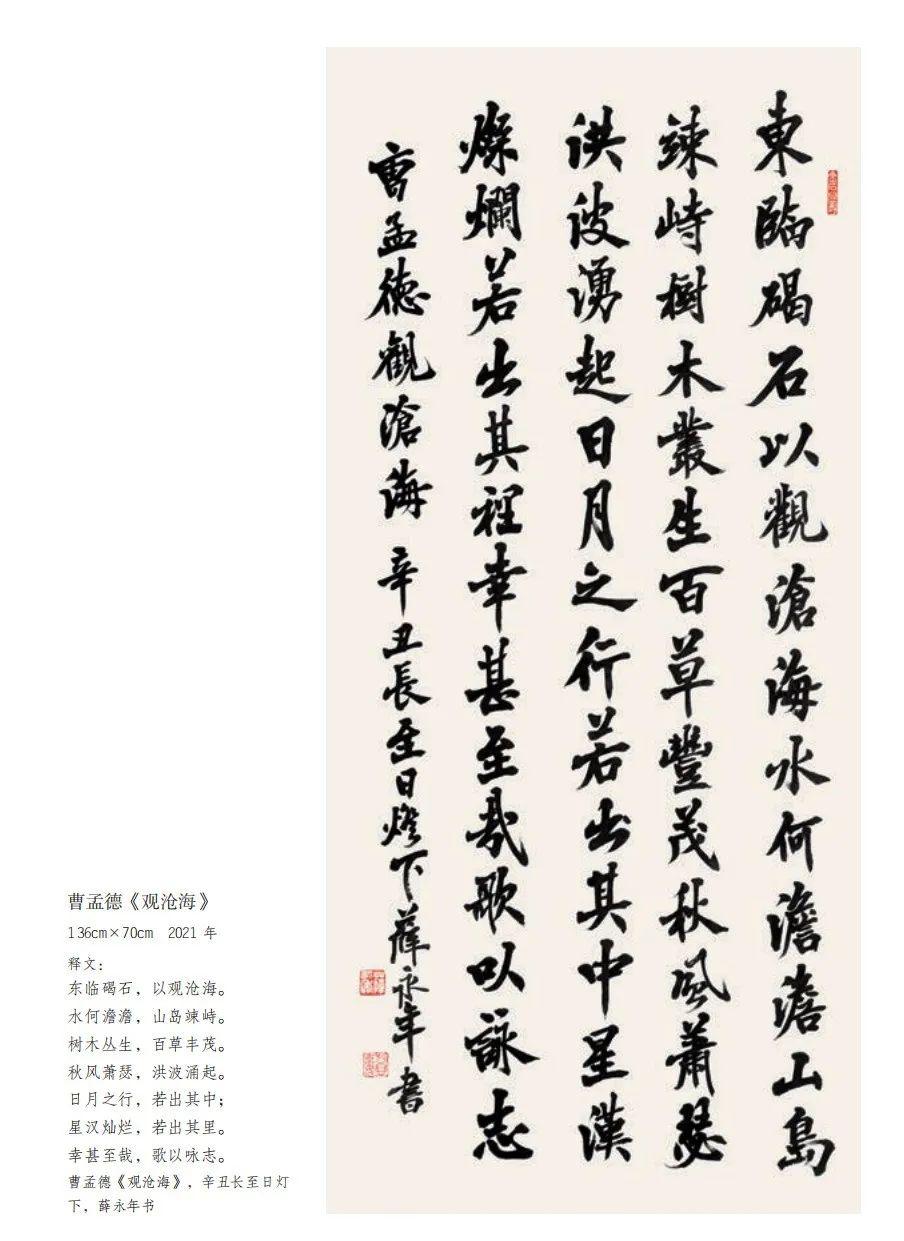 東臨碣石以觀滄海水何澹澹山島
竦峙樹木叢生百草豐茂秋風蕭瑟
洪波湧起日月之行若出其中星漢
燦爛若出其裡幸甚至哉歌以詠志
曹孟德觀滄海 辛丑長至日燈下薛永年書
曹孟德《观沧海》
136cm×70cm 2021 年
释文：
东临碣石，以观沧海。
水何澹澹，山岛竦峙。
树木丛生，百草丰茂。
秋风萧瑟，洪波涌起。
日月之行，若出其中；
星汉灿烂，若出其里。
幸甚至哉，歌以咏志。
曹孟德《观沧海》，辛丑长至日灯
下，薛永年书